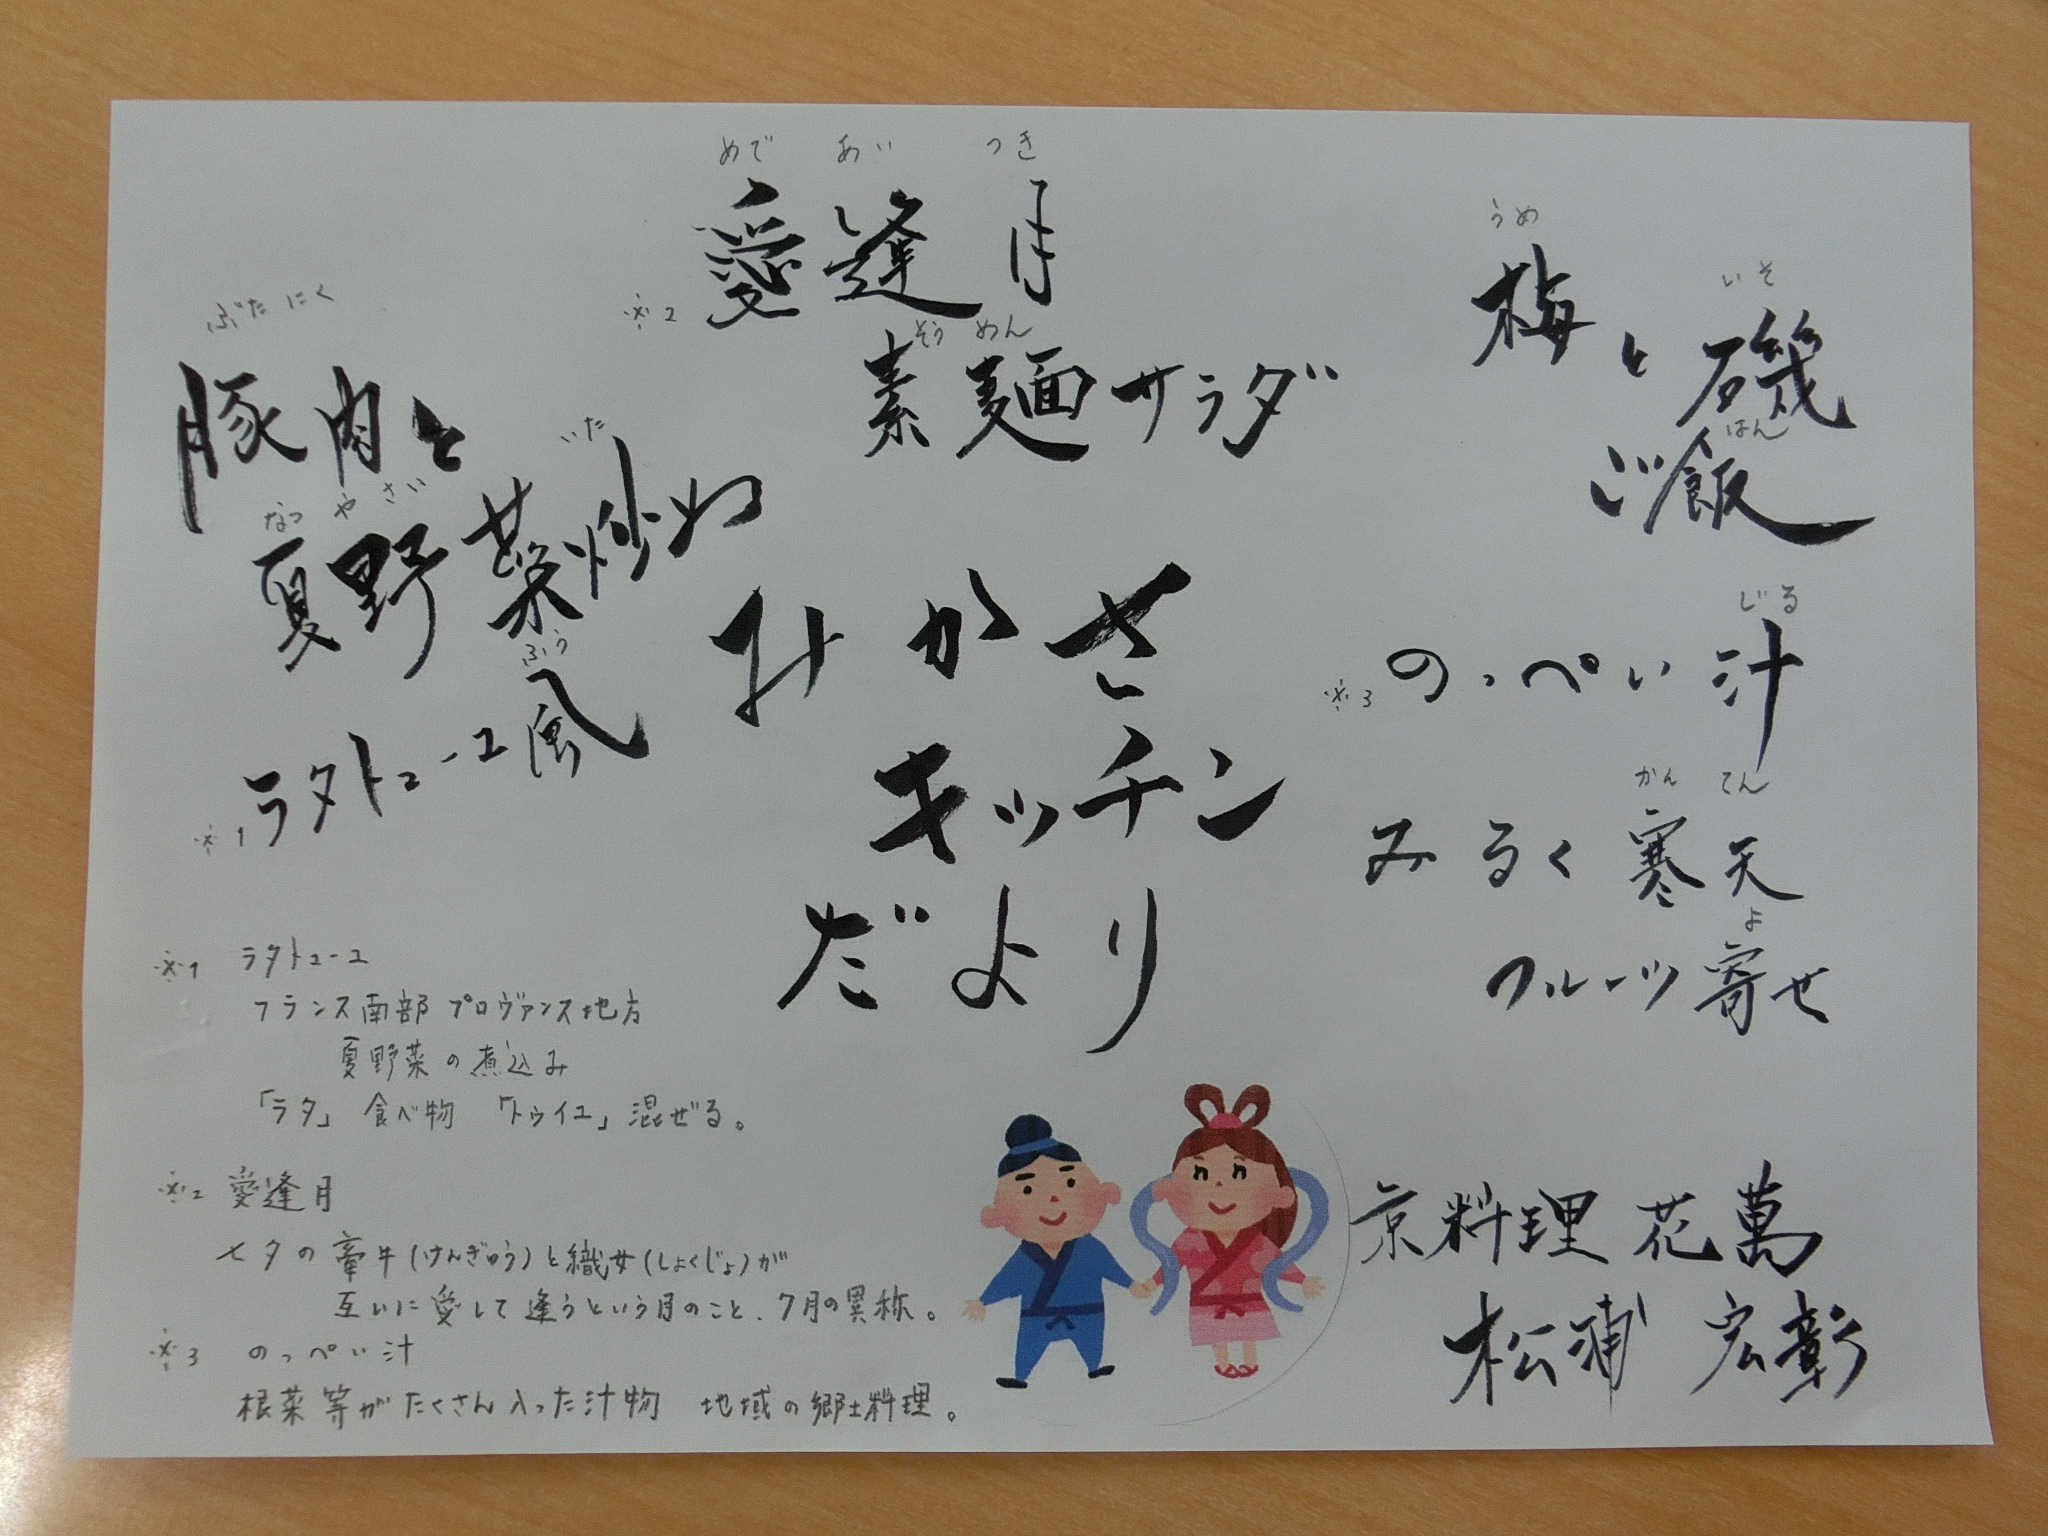 めであいつき
※2 愛逢月
そうめん
素麺サラダ
うめ
梅と
いそ
磯
はん
ご飯
ぶたにく
豚肉と
なつやさい いた
夏野菜炒め
ふう
※1 ラタトューユ風
みかさ
キッチン
だより
じる
※3 のっぺい汁
かんてん
みるく寒天
よ
フルーツ寄せ
※1 ラタトューユ
フランス南部 プロヴァンス地方
夏野菜の煮込み
「ラタ」 食べ物 「トゥイユ」混ぜる。
※2 愛逢月
七夕の牽牛(けんぎゅう)と織女(しょくじょ)が
互いに愛して逢うという月のこと、7月の異称。
※3 のっぺい汁
根菜等がたくさん入った汁物 地域の郷土料理。
京料理 花萬
松浦 宏彰